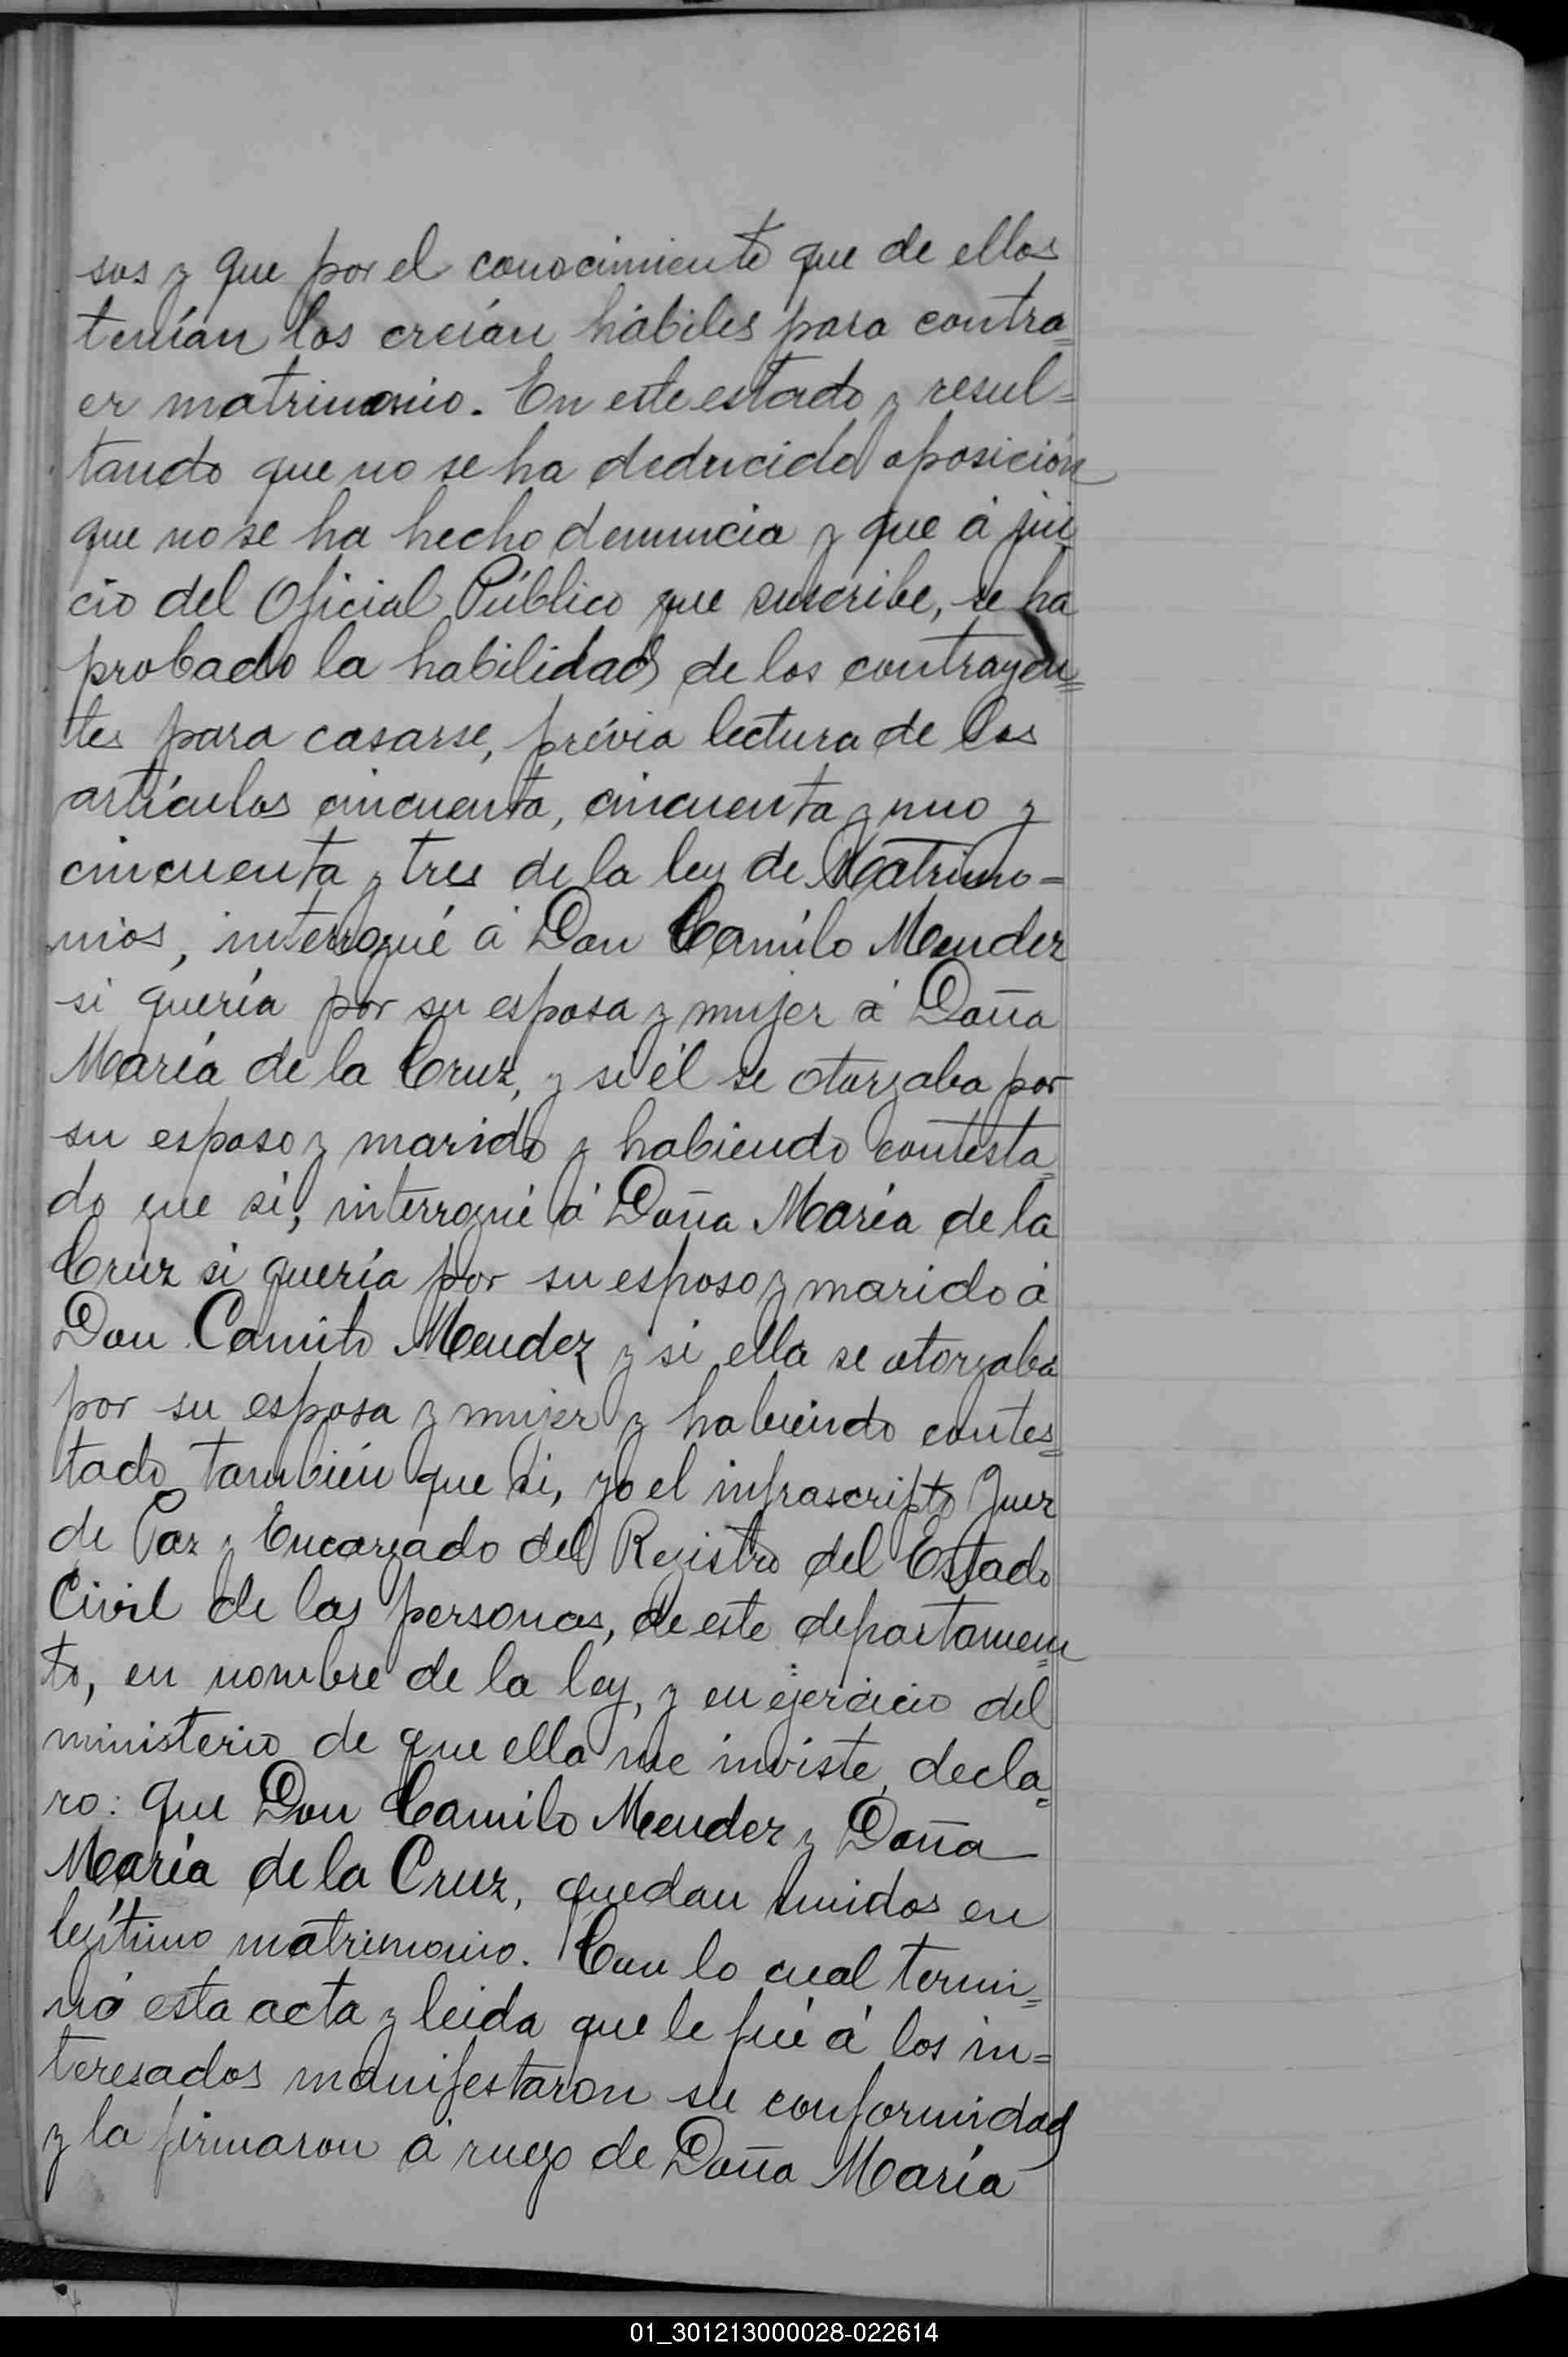 sos y que por el conocimiento que de ellos
tenían los creían hábiles para contra=
er matrimonio. En este estado y resul=
tando que no se ha deducido oposición
que no se ha hecho denuncia y que á jui
cio del Oficial Público que suscribe, se ha
probado la habilidad de los contrayen=
tes para casarse, prévia lectura de los
artículos cincuenta, cincuenta y uno y
cincuenta y tres de la ley de Matrimo=
nios, interrogué á Don Camilo Mendez
si quería por su esposa y mujer á Doña
María de la Cruz, y si él se otorgaba por
su esposo y marido y habiendo contesta=
do que si, interrogué á Doña María de la
Cruz si quería por su esposo y marido á
Don Camilo Mendez y si ella se otorgaba
por su esposa y mujer y habiendo contes=
tado también que si, yo el infrascripto Juez
de Paz y Encargado del Registro del Estado
Civil de las personas, de este departamen=
to, en nombre de la ley, y en ejercicio del
ministerio de que ella me inviste, decla=
ro: que Don Camilo Mendez y Doña
María de la Cruz, quedan unidos en
legítimo matrimonio. Con lo cual termi=
nó esta acta y leida que le fué á los in=
teresados manifestaron su conformidad
y la firmaron á ruego de Doña María
01_301213000028-022614